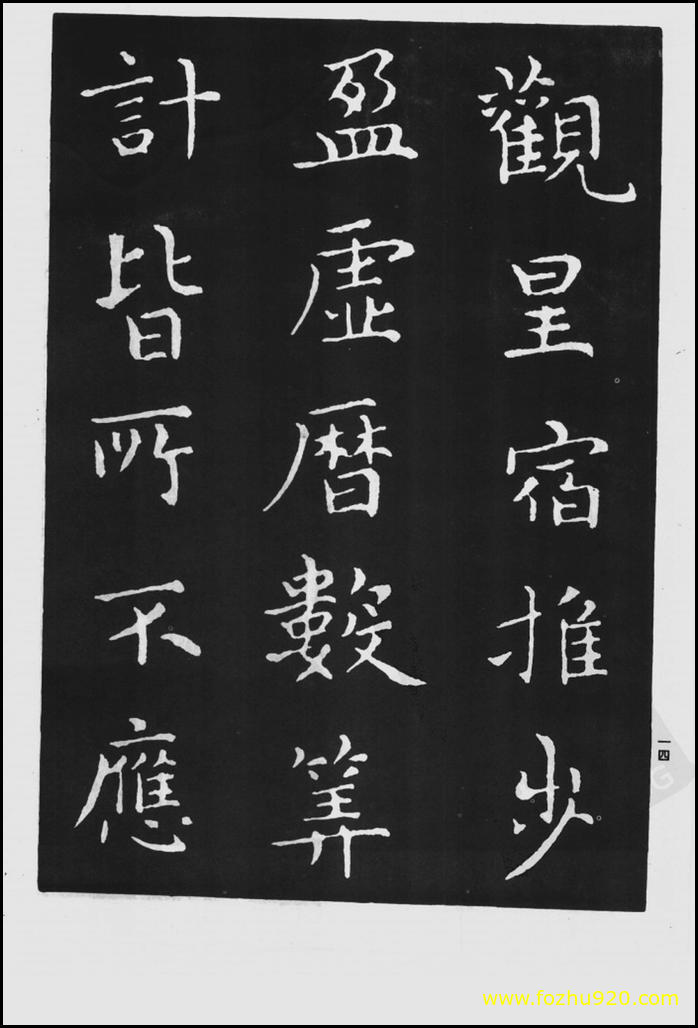 觀星宿推步
盈虛曆數筭
計皆所不應
一四
www.fozhu920.com